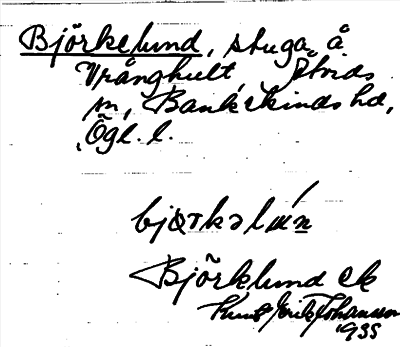 Björkelund, stuga, å
Vrånghult, Åtvids
sn, Bankekinds hd,
Ögl. l.
bjørkəlún
Björklund ek
Knut Erik Johansson
1935